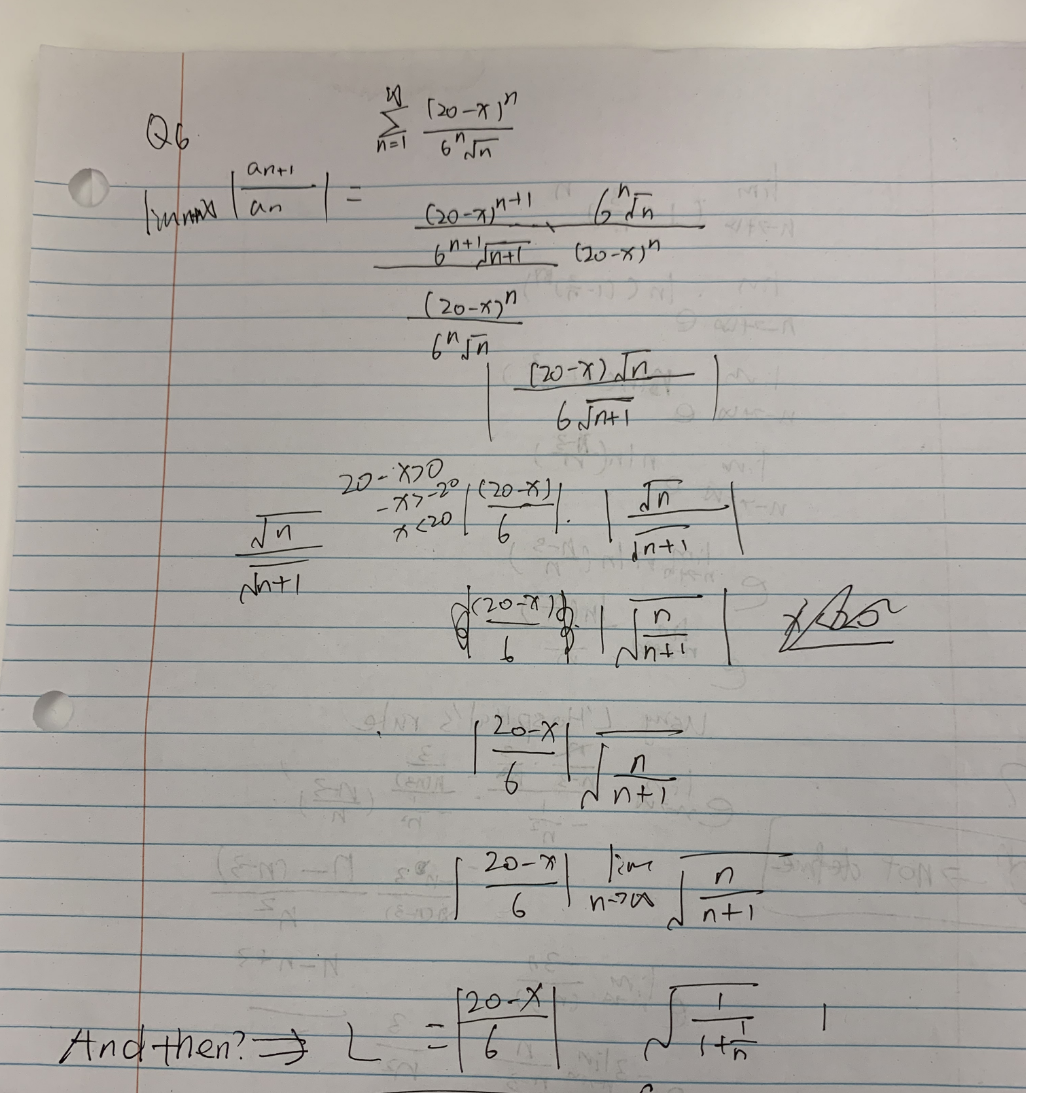 Q6. \sum_{n=1}^{\infty} \frac{(20-x)^n}{6^n \sqrt{n}}
lim_{n→∞} \left| \frac{a_{n+1}}{a_n} \right| = \frac{(20-x)^{n+1}}{6^{n+1}\sqrt{n+1}} \cdot \frac{6^n \sqrt{n}}{(20-x)^n}
\frac{(20-x)^n}{6^n \sqrt{n}}
\left| \frac{(20-x)\sqrt{n}}{6\sqrt{n+1}} \right|
20-x>0
-x>-20
x<20
\frac{\sqrt{n}}{\sqrt{n+1}} \left| \frac{(20-x)}{6} \right| \cdot \left| \frac{\sqrt{n}}{\sqrt{n+1}} \right|
\frac{(20-x)}{6} \cdot \left| \sqrt{\frac{n}{n+1}} \right|
\left| \frac{20-x}{6} \right| \sqrt{\frac{n}{n+1}}
\left| \frac{20-x}{6} \right| lim_{n→∞} \sqrt{\frac{n}{n+1}}
And then? ⇒ L = \left| \frac{20-x}{6} \right| \sqrt{\frac{1}{1+\frac{1}{n}}} 1